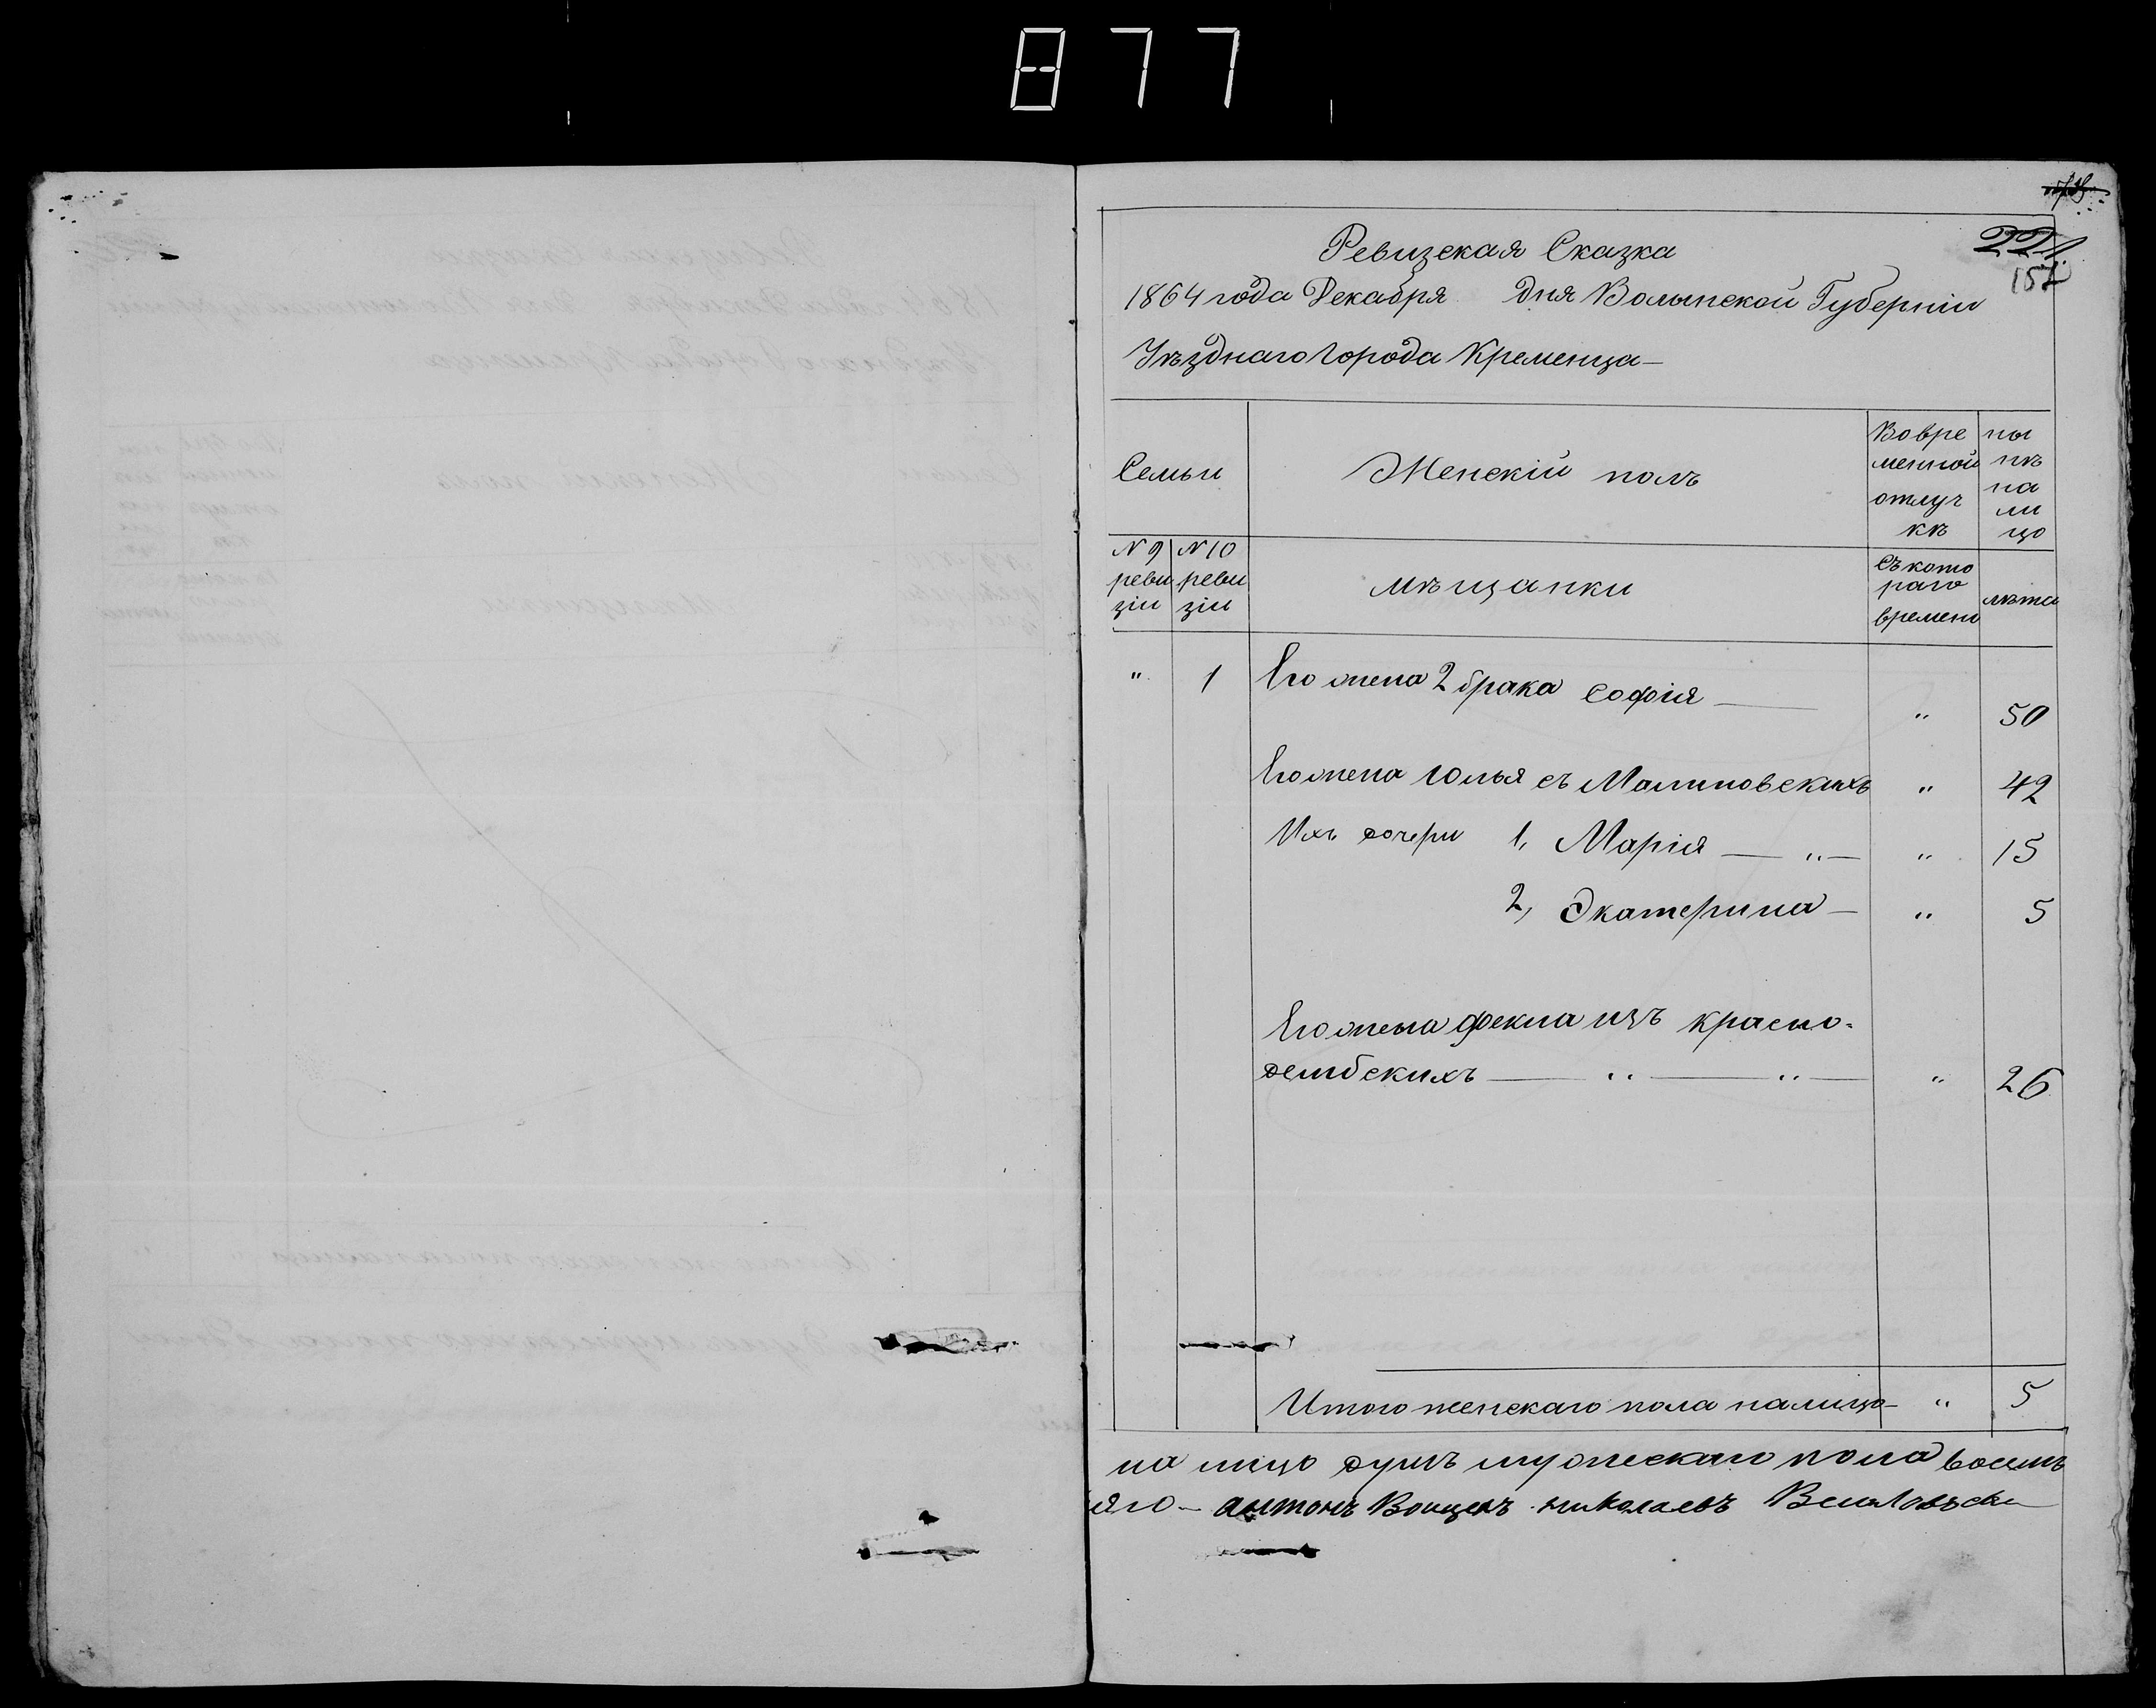 877
221.
157
Ревизская Сказка
1864 года Декабря дня Волынской Губерніи
Уѣзднаго Города Кременца —
Семьи
Женскій полъ
Вовре
менной
отлуч
кѣ
ны
нѣ
на
ли
цо
№ 9
реви
зіи
№ 10
реви
зіи
мѣщанки
Съ кото
раго
времени
лѣта
" 1 Его жена 2 брака Софія — " 50
Его жена Юлья съ Малиновскихъ " 42
Ихъ дочери 1, Марія — " — " 15
2, Экатерина — " 5
Его жена Фекла изъ красно-
дембскихъ — " — " — " 26
Итого женскаго пола налицо — " 5
на лицо душъ мужескаго пола восемъ
яго — антонъ Николаевъ